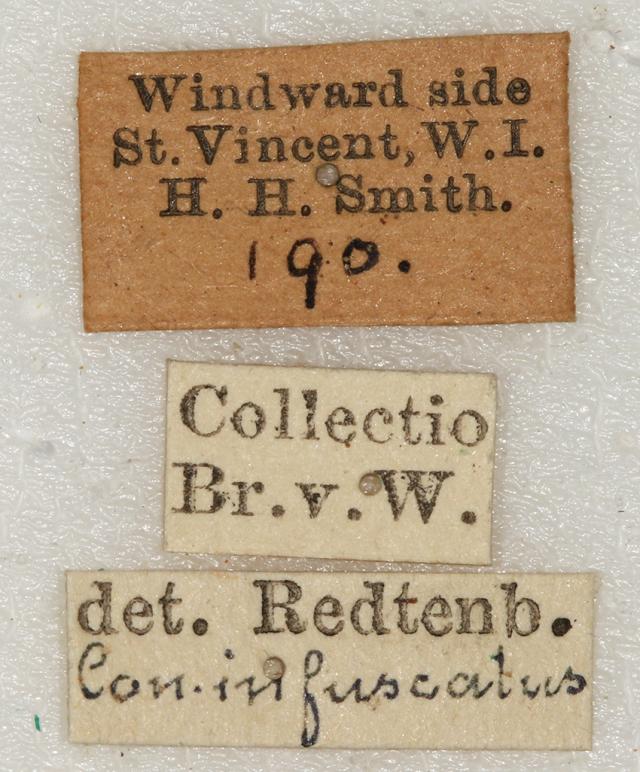 Windward side
St. Vincent, W. I.
H. H. Smith.
190.
Collectio
Br. v. W.
det. Redtenb.
Con. infuscatus